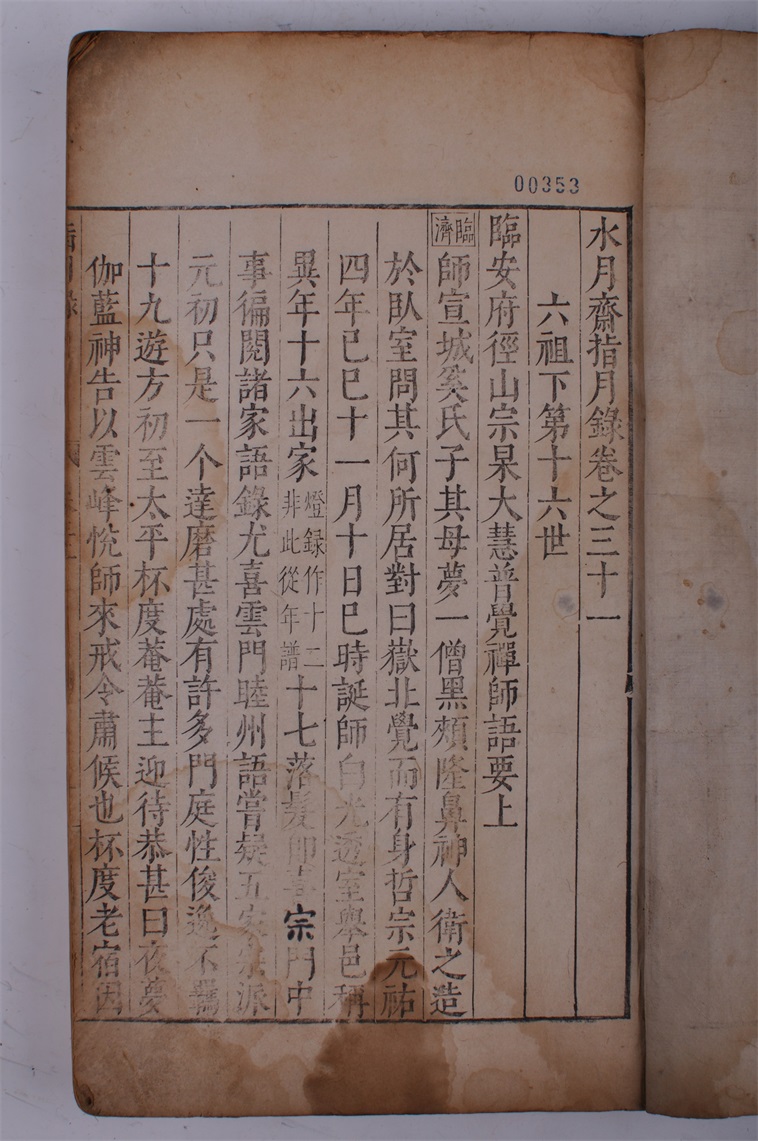 00353
水月齋指月錄卷之三十一
六祖下第十六世
臨安府徑山宗杲大慧普覺禪師語要上
臨濟師宣城奚氏子其母夢一僧黑頰隆鼻神人衛之造
於臥室問其何所居對曰嶽北覺而有身哲宗元祐
四年己巳十一月十日巳時誕師白光透室舉邑稱
異年十六出家燈錄作十二非此從年譜十七落髮即喜宗門中
事徧閱諸家語錄尤喜雲門睦州語嘗疑五家宗派
元初只是一个達磨甚處有許多門庭性俊逸不羈
十九遊方初至太平杯度菴菴主迎待恭甚曰夜夢
伽藍神告以雲峰悅師來戒令肅候也杯度老宿因